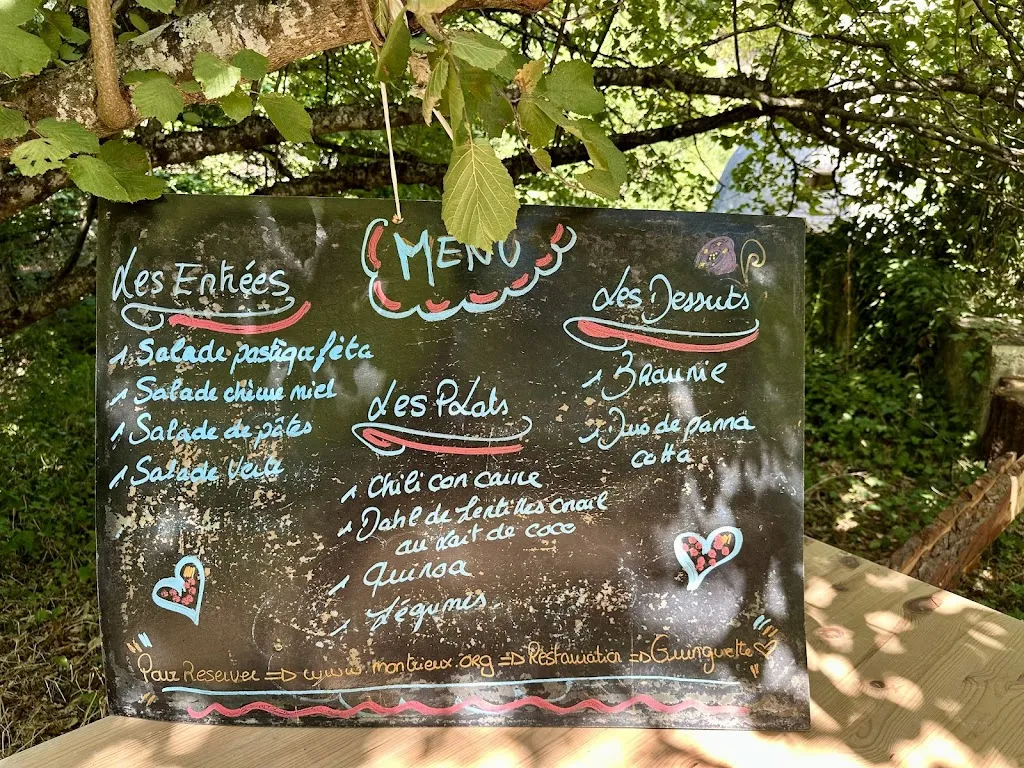 MENU
Les Entrées
Salade pastèque féta
Salade chèvre miel
Salade de pâtes
Salade Verte
Les Plats
Chili con carne
Dahl de Lentilles corail
au Lait de coco
Quinoa
Légumes
Les Desserts
Brownie
Duo de panna
cotta
Pour Reserver => www.montrieux.org => Restauration => Guinguette